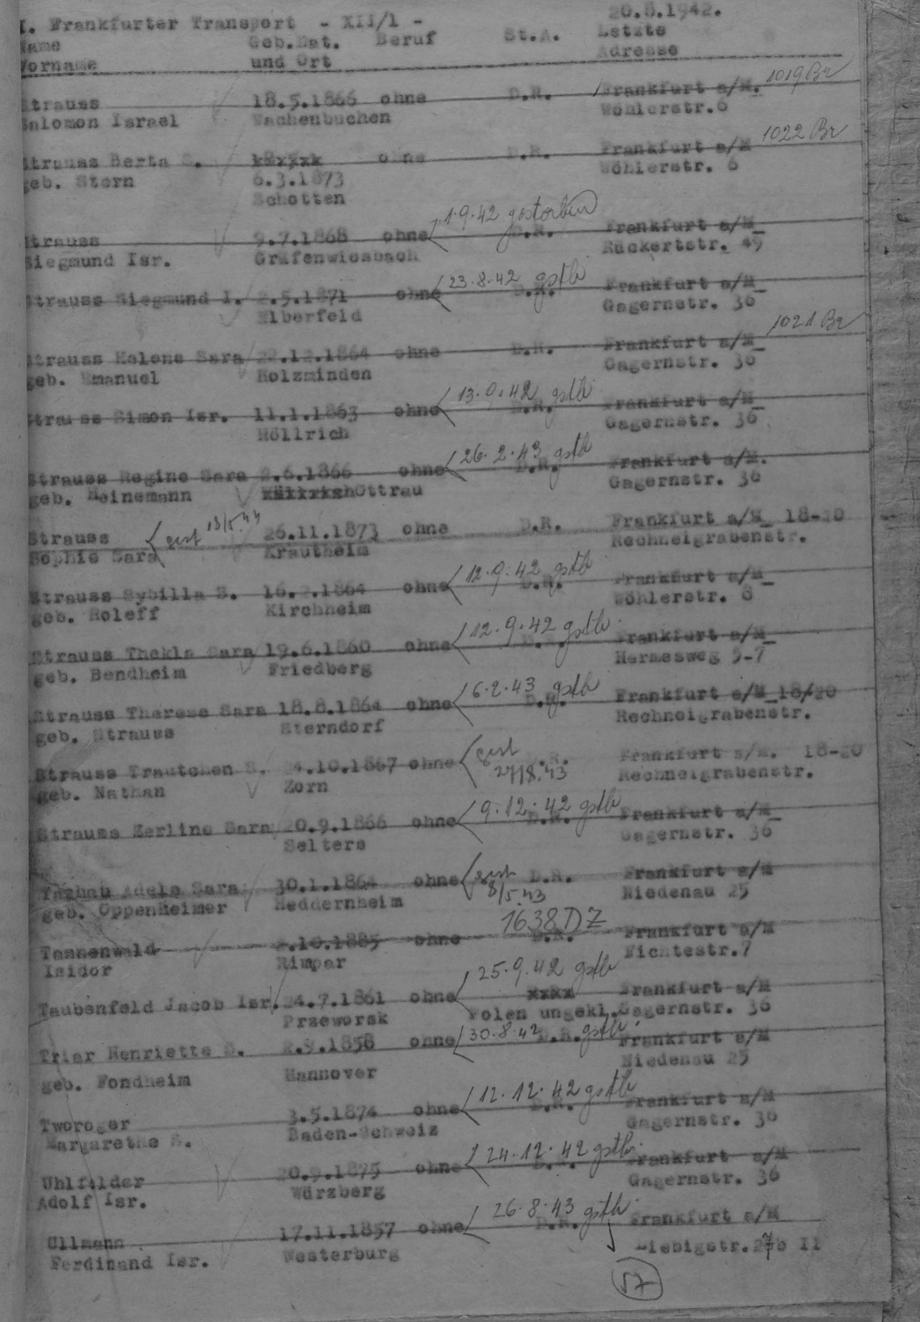 I. Frankfurter Transport - XII/1 - 20.8.1942.
Name Geb.Dat. Beruf St.A. Letzte
Vorname und Ort Adresse
Strauss 18.5.1866 ohne D.R. Frankfurt a/M. 1019 Br
Salomon Israel Wachenbuchen Wöhlerstr.6
Strauss Berta S. ohne D.R. Frankfurt a/M 1022 Br
geb. Stern 6.3.1873 Wöhlerstr. 6
Schotten
Strauss 9.7.1868 ohne 1.9.42 gestorben D.R. Frankfurt a/M
Siegmund Isr. Gräfenwiesbach Rückertstr. 49
Strauss Siegmund I. 2.5.1871 ohne 23.8.42 gstb D.R. Frankfurt a/M
Elberfeld Gagernstr. 36
Strauss Helene Sara 22.12.1864 ohne D.R. Frankfurt a/M 1021 Br
geb. Emanuel Holzminden Gagernstr. 36
Strauss Simon Isr. 11.1.1863 ohne 13.9.42 gstb D.R. Frankfurt a/M
Höllrich Gagernstr. 36
Strauss Regine Sara 2.6.1866 ohne 26.2.43 gstb D.R. Frankfurt a/M.
geb. Heinemann Ottrau Gagernstr. 36
Strauss gest 13/5.44 26.11.1873 ohne D.R. Frankfurt a/M 18-20
Sophie Sara Krautheim Rechneigrabenstr.
Strauss Sybilla S. ohne 12.9.42 gstb D.R. Frankfurt a/M
geb. Roleff Kirchheim Wöhlerstr. 6
Strauss Thekla Sara 19.6.1860 ohne 12.9.42 gstb. D.R. Frankfurt a/M
geb. Bendheim Friedberg Hermesweg 5-7
Strauss Therese Sara 18.8.1864 ohne 6.2.43 gstb D.R. Frankfurt a/M 18/20
geb. Strauss Sterndorf Rechneigrabenstr.
Strauss Trautchen S. 24.10.1867 ohne gest D.R. Frankfurt a/M. 18-20
geb. Nathan Zorn 27/8.43 Rechneigrabenstr.
Strauss Zerline Sara 20.9.1866 ohne 9.12.42 gstb D.R. Frankfurt a/M
Selters Gagernstr. 36
Adele Sara 30.1.1864 ohne gest D.R. Frankfurt a/M
geb. Oppenheimer Heddernheim 8/5.43 Niedenau 25
Tannenwald .10.1885 ohne 1638 DZ D.R. Frankfurt a/M
Isidor Rimpar Fichtestr.7
Taubenfeld Jacob Isr. 24.7.1861 ohne 25.9.42 gstb xxxx Frankfurt a/M
Przeworsk Polen ungekl. Gagernstr. 36
Trier Henriette S. 2.9.1858 ohne 30.8.42 D.R. gstb. Frankfurt a/M
geb. Fondheim Hannover Niedenau 25
Tworoger 3.5.1874 ohne 12.12.42 gstb D.R. Frankfurt a/M
Margarethe S. Baden-Schweiz Gagernstr. 36
Uhlfelder 20.9.1875 ohne 24.12.42 gstb. D.R. Frankfurt a/M
Adolf Isr. Würzberg Gagernstr. 36
Ullmann 17.11.1857 ohne 26.8.43 gstb D.R. Frankfurt a/M
Ferdinand Isr. Westerburg Liebigstr.27b II
57